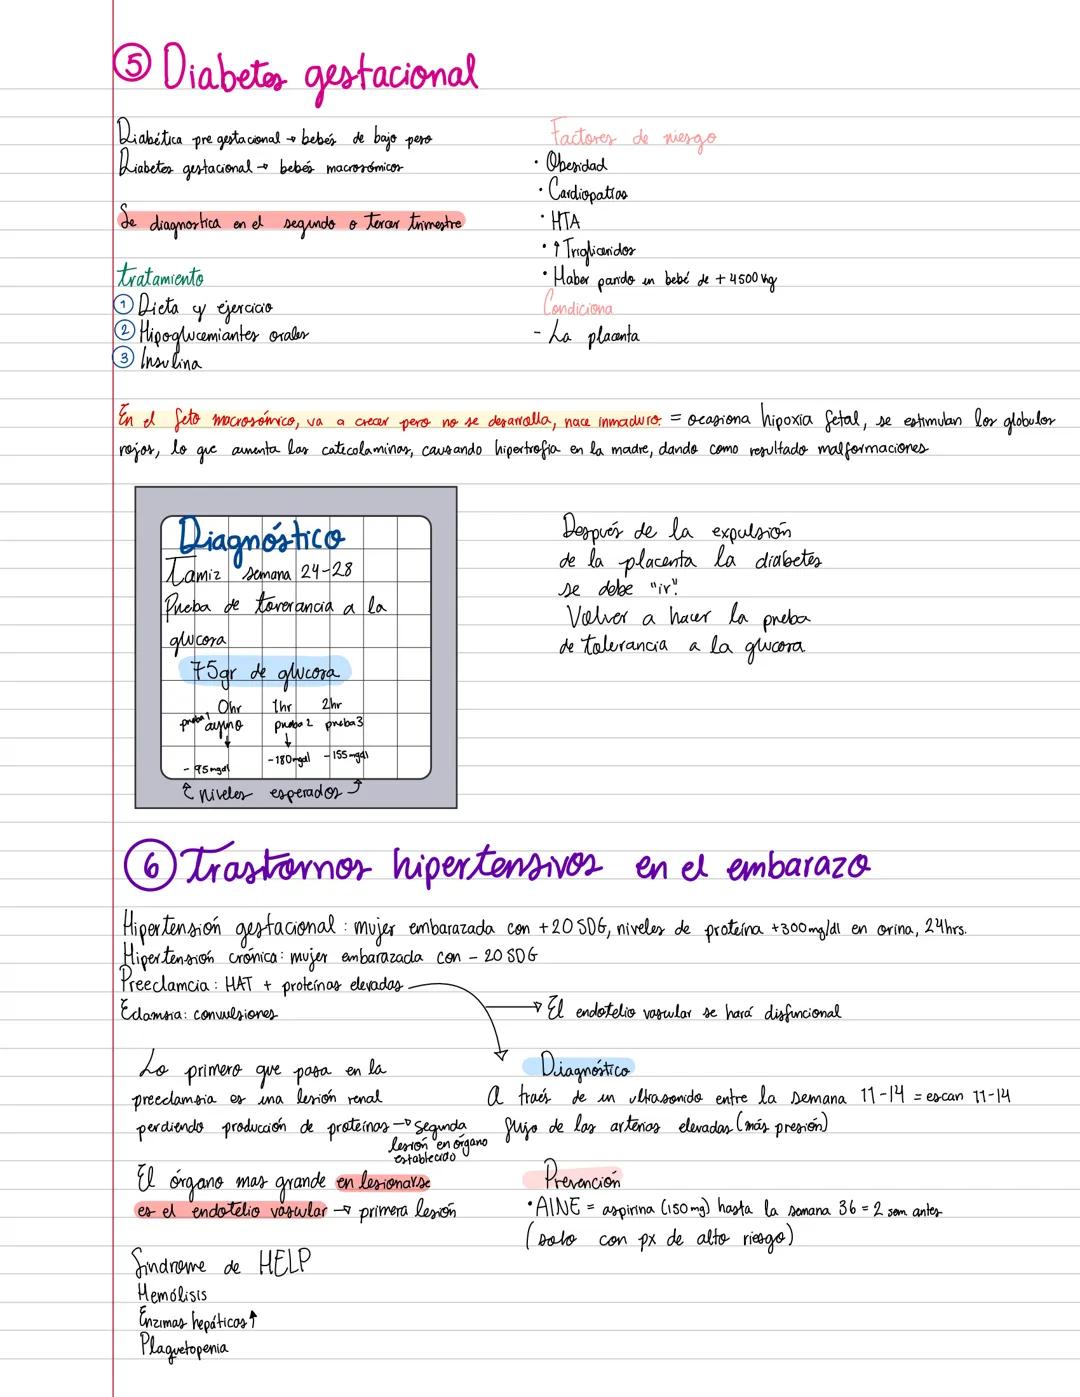 ⑤ Diabetes gestacional
Diabética pre gestacional → bebés de bajo peso
Diabetes gestacional → bebés macrosómicos
Se diagnostica en el segundo o tercer trimestre
tratamiento
① Dieta y ejercicio
② Hipoglucemiantes orales
③ Insulina
Factores de riesgo
· Obesidad
· Cardiopatias
· HTA
· ↑ Trigliceridos
· Haber parido un bebé de +4500 kg
Condiciona
- La placenta
En el feto macrosómico, va a crecer pero no se desarrolla, nace inmaduro. = ocasiona hipoxia fetal, se estimulan los globulos
rojos, lo que aumenta las catecolaminas, causando hipertrofia en la madre, dando como resultado malformaciones
Diagnóstico
Tamiz semana 24-28
Prueba de toverancia a la
glucosa
75gr de glucosa
0hr 1hr 2hr
prueba 1 ayuno prueba 2 prueba 3
↓ ↓
- 95mgdl -180mgdl -155mgdl
↑ niveles esperados ↑
Después de la expulsión
de la placenta la diabetes
se debe "ir".
Volver a hacer la prueba
de tolerancia a la glucosa
⑥ Trastornos hipertensivos en el embarazo
Hipertensión gestacional : mujer embarazada con +20 SDG, niveles de proteína +300mg/dl en orina, 24hrs.
Hipertensión crónica: mujer embarazada con - 20 SDG
Preeclamcia : HAT + proteínas elevadas
Eclamsia: convulsiones
→ El endotelio vascular se hará disfuncional
Lo primero que pasa en la
preeclamsia es una lesión renal
perdiendo producción de proteínas → Segunda
lesión en órgano
establecido
El órgano mas grande en lesionarse
es el endotelio vascular → primera lesión
Sindrome de HELP
Hemólisis
Enzimas hepáticas ↑
Plaquetopenia
Diagnóstico
A traés de un ultrasonido entre la semana 11-14 = escan 11-14
flujo de las arterias elevadas (más presión)
Prevención
· AINE = aspirina (150 mg) hasta la semana 36 = 2 sem antes
(solo con px de alto riesgo)